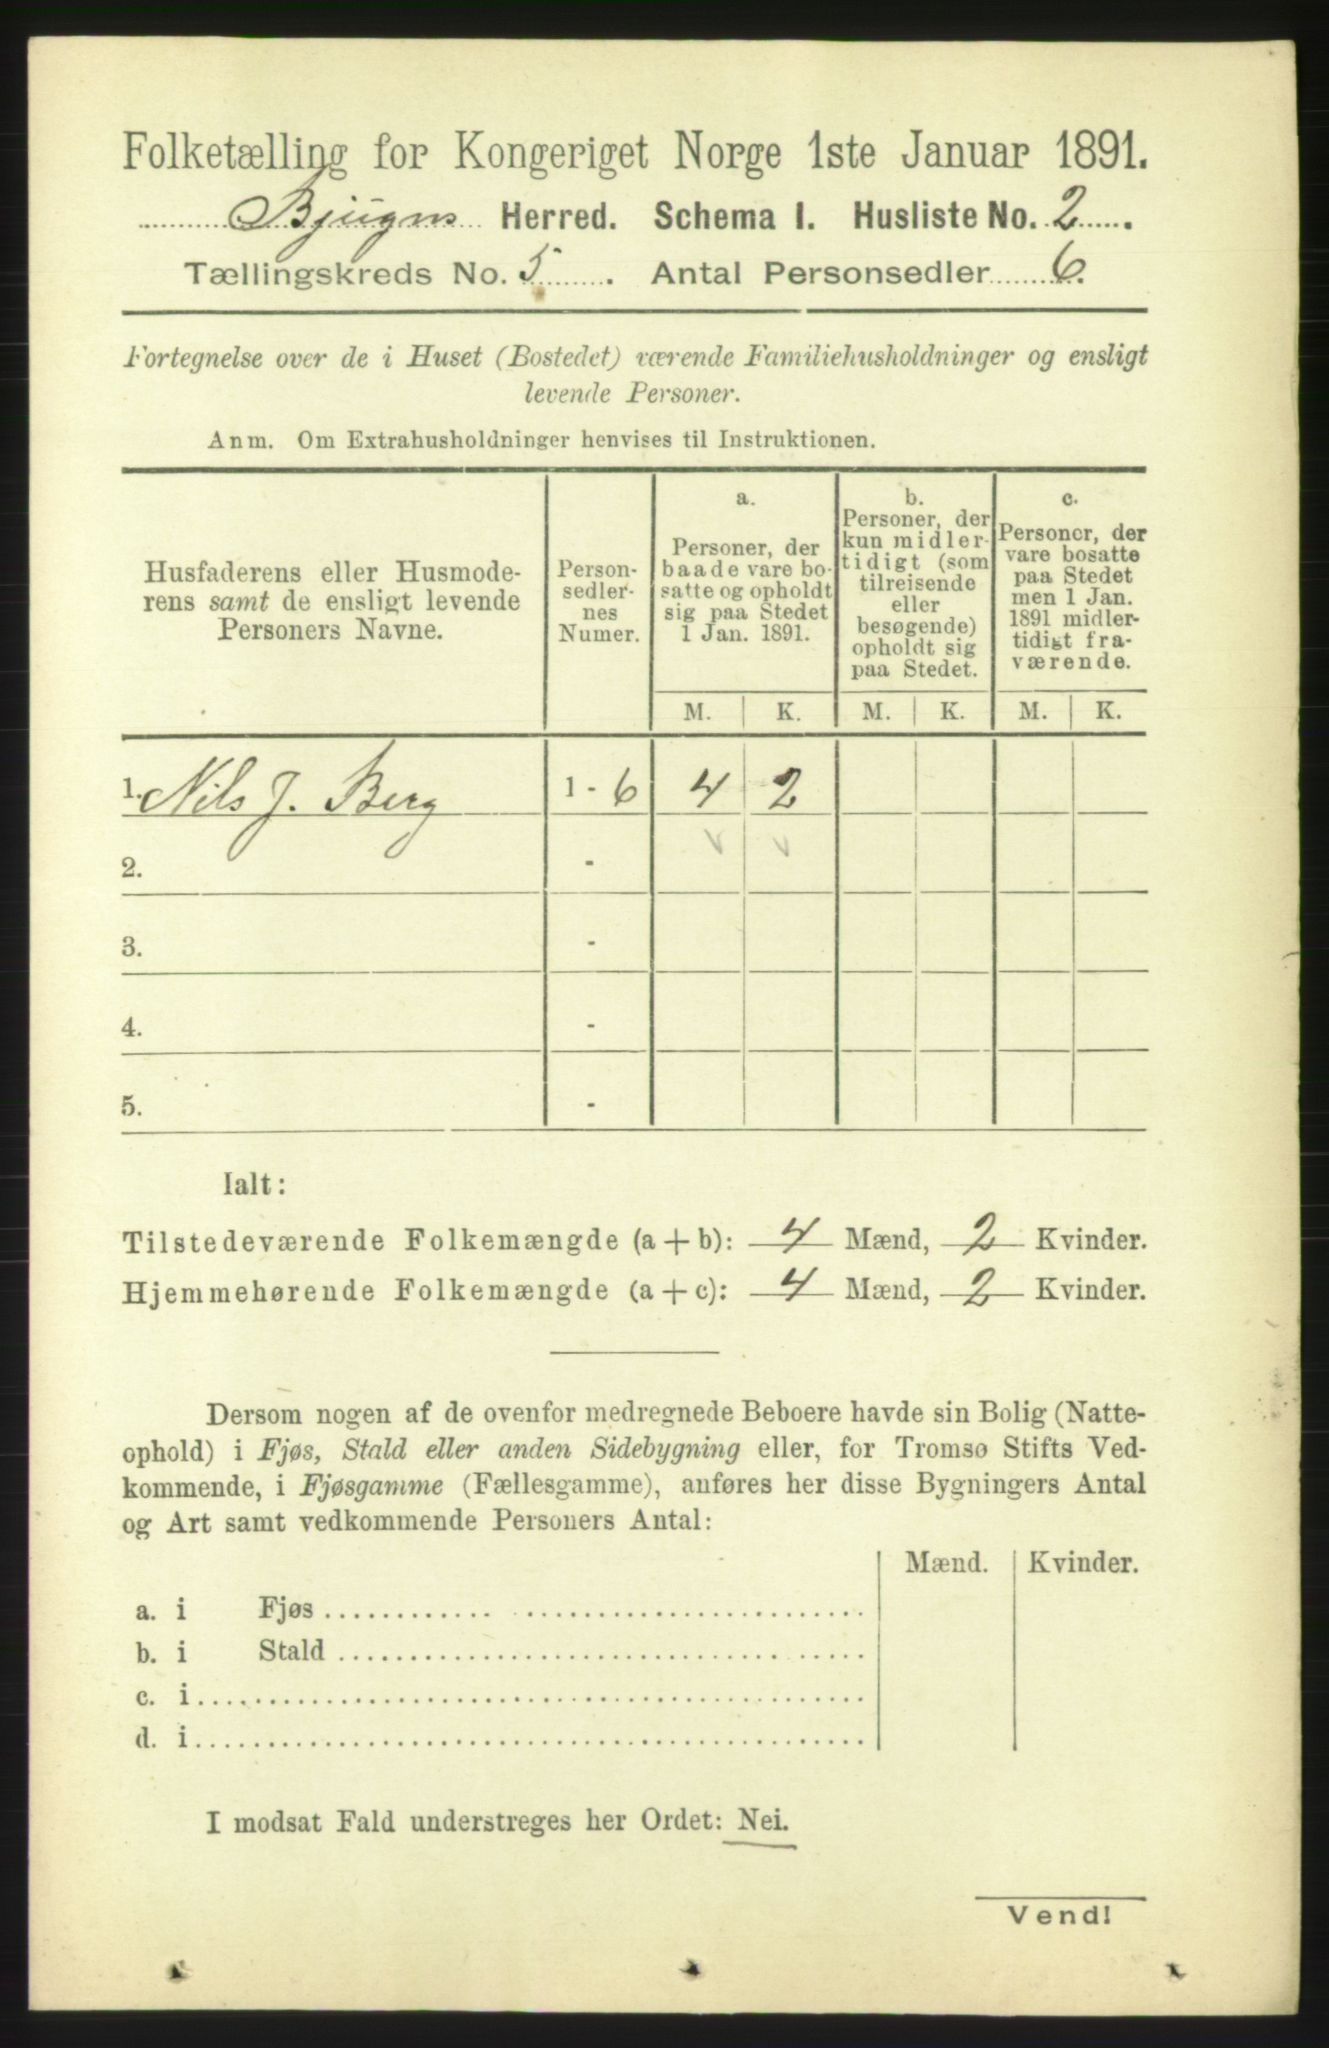 Folketælling for Kongeriget Norge 1ste Januar 1891.
Bjugns Herred. Schema I. Husliste No. 2.
Tællingskreds No. 5. Antal Personsedler 6.
Fortegnelse over de i Huset (Bostedet) værende Familiehusholdninger og ensligt
levende Personer.
Anm. Om Extrahusholdninger henvises til Instruktionen.
Husfaderens eller Husmode-
rens samt de ensligt levende
Personers Navne.
Person-
sedler-
nes
Numer.
a.
Personer, der
baade vare bo-
satte og opholdt
sig paa Stedet
1 Jan. 1891.
b.
Personer, der
kun midler-
tidigt (som
tilreisende
eller
besøgende)
opholdt sig
paa Stedet.
c.
Personer, der
vare bosatte
paa Stedet
men 1 Jan.
1891 midler-
tidigt fra-
værende.
M. K. M. K. M. K.
1. Nils J. Berg 1 - 6 4 2
2. -
3. -
4. -
5. -
Ialt:
Tilstedeværende Folkemængde (a + b): 4 Mænd, 2 Kvinder.
Hjemmehørende Folkemængde (a + c): 4 Mænd, 2 Kvinder.
Dersom nogen af de ovenfor medregnede Beboere havde sin Bolig (Natte-
ophold) i Fjøs, Stald eller anden Sidebygning eller, for Tromsø Stifts Ved-
kommende, i Fjøsgamme (Fællesgamme), anføres her disse Bygningers Antal
og Art samt vedkommende Personers Antal:
Mænd. Kvinder.
a. i Fjøs
b. i Stald
c. i
d. i
I modsat Fald understreges her Ordet: Nei.
Vend!